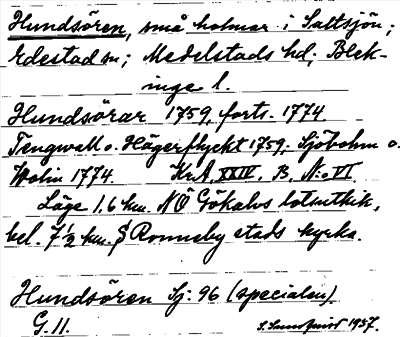 Hundsören, små holmar i Saltsjön;
Edestad sn; Medelstads hd; Blek-
inge l.
Hundsörar 1759, forts. 1774
Tengwall o. Hägerflyckt 1759. Sjöbohm o.
Wolin 1774. KrA XXIV, B, N:o VI
Läge 1,6 km. NÖ Gökalvs lotsutkik,
bel. 7½ km. S Ronneby stads kyrka.
Hundsören Sj: 96 (specialen)
G. 11. S. Lundquist 1957.